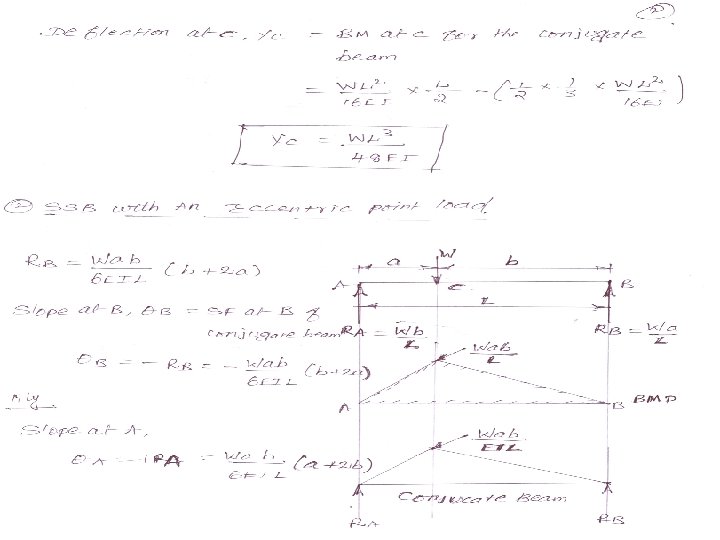 2
Deflection at C, Yc = BM at C for the conjugate
beam
= WL²/16EI × L/2 - (L/2 × 1/3 × WL²/16EI)
Yc = WL³/48EI
② SSB with an Eccentric point load
RB = Wab/6EIL (b+2a)
Slope at B, θB = SF at B of
conjugate beam
θB = - RB = - Wab/6EIL (b+2a)
lly
Slope at A,
θA = RA = Wab/6EIL (a+2b)
a W b
A C B
L
RA = Wb/L RB = Wa/L
Wab/L
A B BMD
Wab/EIL
Conjugate Beam
RA RB